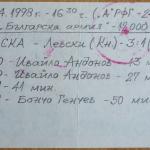 4.1998 г. - 16 30 ч. ("А" РФГ - 2
"Българска армия" - 12000
СКА - Левски (Кн) - 3:1 (
0 - Ивайло Андонов - 13 м
0 - Ивайло Андонов - 27 м
- 41 мин
- Бончо Генчев - 50 ми